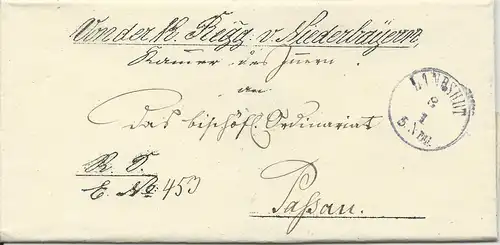 Von der K. Regg. v. Niederbayern,
Kammer des Innern
an
Das bischöfl. Ordinariat
R. S.
E. No: 453
Passau.
LANDSHUT
8
1
5. N Ab.